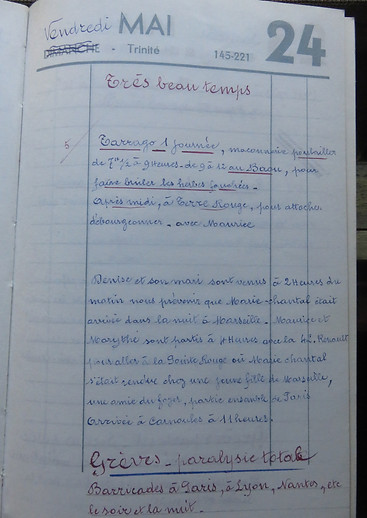 Vendredi MAI 24
DIMANCHE - Trinité 145-221
Très beau temps
5 Tarrago 1 journée, maçonnerie
de 7h ½ à 9 Heures - de 9 à 12 au Baou, pour
faire brûler les herbes
Après midi, à Terre Rouge, pour attacher
débourgeonner - avec Maurice
Denise et son mari sont venus à 2 Heures du
matin nous prévenir que Marie-chantal était
arrivée dans la nuit à Marseille - Maurice et
Marythé sont partis à 7 Heures avec la Renault
pour aller à la Pointe Rouge où Marie chantal
s'était rendue chez une jeune fille de Marseille,
une amie du foyer, partie ensemble de Paris
Arrivée à Carnoules à 11 heures.
Grèves - paralysie totale
Barricades à Paris, à Lyon, Nantes, etc
le soir et la nuit -